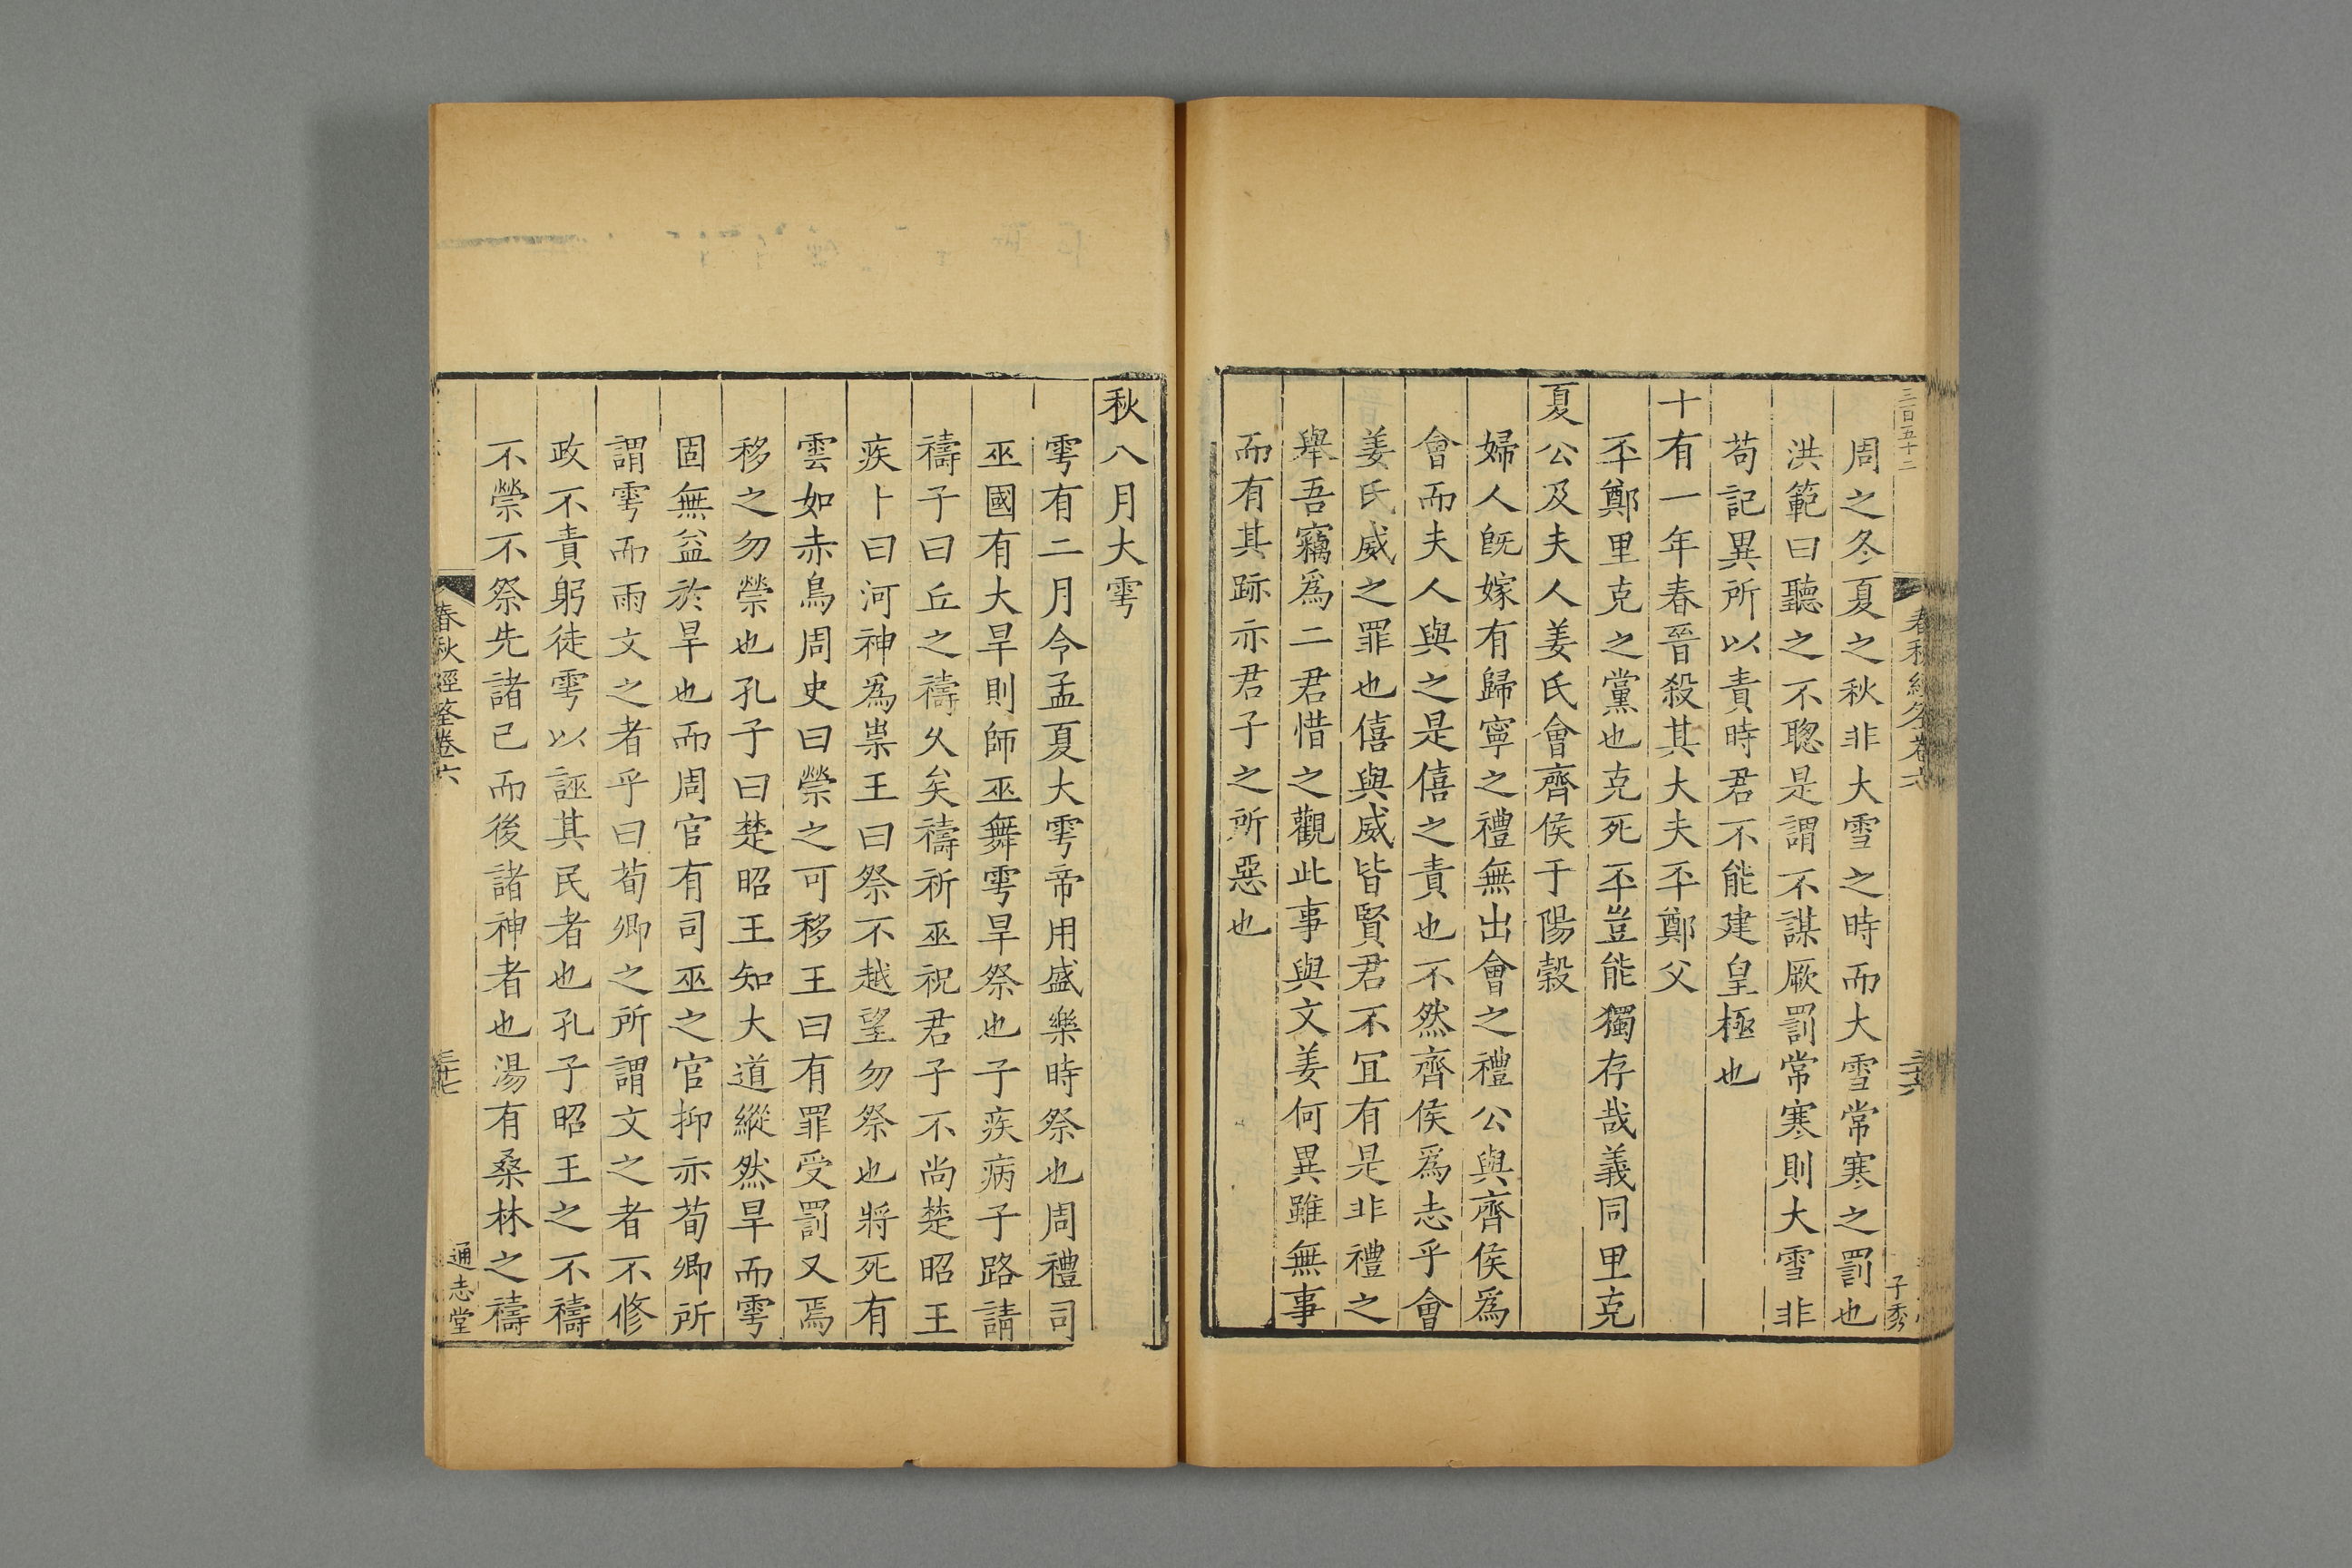 周之冬夏之秋非大雪之時而大雪常寒之罰也
洪範曰聽之不聰是謂不謀厥罰常寒則大雪非
苟記異所以責時君不能建皇極也
十有一年春晉殺其大夫㔻鄭父
㔻鄭里克之黨也克死㔻豈能獨存哉義同里克
夏公及夫人姜氏會齊侯于陽榖
婦人旣嫁有歸寧之禮無出會之禮公與齊侯爲
會而夫人與之是僖之責也不然齊侯爲志乎會
姜氏威之罪也僖與威皆賢君不宜有是非禮之
舉吾竊爲二君惜之觀此事與文姜何異雖無事
而有其跡亦君子之所惡也
春秋經筌卷六
三十六
子秀
秋八月大雩
雩有二月令孟夏大雩帝用盛樂時祭也周禮司
巫國有大旱則師巫舞雩旱祭也子疾病子路請
禱子曰丘之禱久矣禱祈巫祝君子不尚楚昭王
疾卜曰河神爲祟王曰祭不越望勿祭也將死有
雲如赤鳥周史曰禜之可移王曰有罪受罰又焉
移之勿禜也孔子曰楚昭王知大道縱然旱而雩
固無益於旱也而周官有司巫之官抑亦荀卿所
謂雩而雨文之者乎曰荀卿之所謂文之者不修
政不責躬徒雩以誣其民者也孔子昭王之不禱
不禜不祭先諸己而後諸神者也湯有桑林之禱
春秋經筌卷六
三十七
通志堂